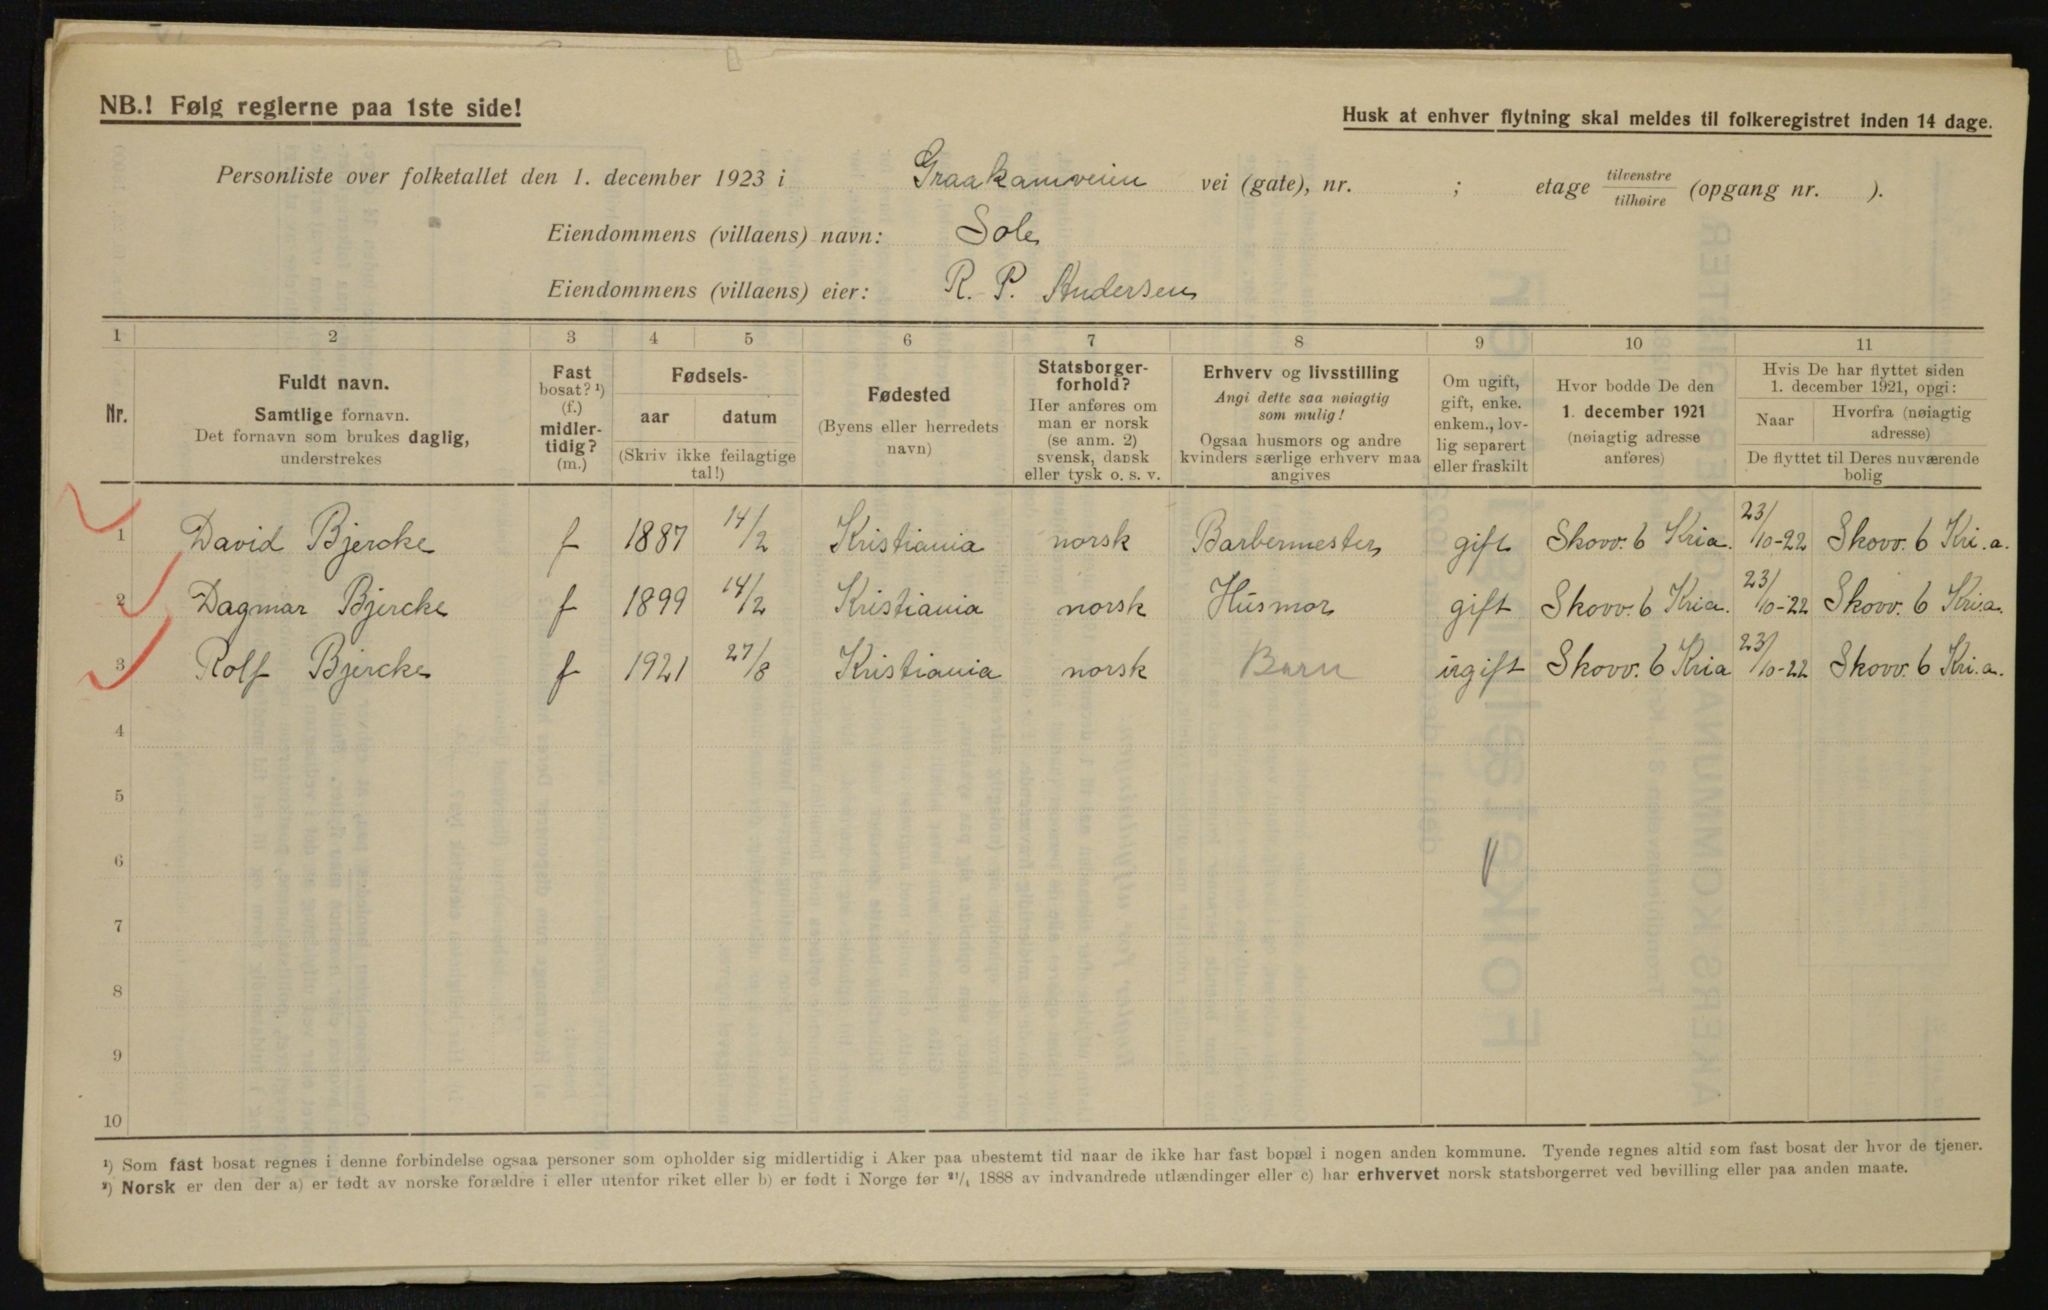 NB.! Følg reglerne paa 1ste side!
Husk at enhver flytning skal meldes til folkeregistret inden 14 dage.
Personliste over folketallet den 1. december 1923 i Graakamveien vei (gate), nr. ; etage tilvenstre/tilhøire (opgang nr. ).
Eiendommens (villaens) navn: Sole
Eiendommens (villaens) eier: R. P. Andersen
1 2 3 4 5 6 7 8 9 10 11
Nr.
Fuldt navn.
Samtlige fornavn.
Det fornavn som brukes daglig,
understrekes
Fast
bosat? ¹)
(f.)
midler-
tidig?
(m.)
Fødsels-
aar datum
(Skriv ikke feilagtige
tal!)
Fødested
(Byens eller herredets
navn)
Statsborger-
forhold?
Her anføres om
man er norsk
(se anm. 2)
svensk, dansk
eller tysk o. s. v.
Erhverv og livsstilling
Angi dette saa nøiagtig
som mulig!
Ogsaa husmors og andre
kvinders særlige erhverv maa
angives
Om ugift,
gift, enke.
enkem., lov-
lig separert
eller fraskilt
Hvor bodde De den
1. december 1921
(nøiagtig adresse
anføres)
Hvis De har flyttet siden
1. december 1921, opgi:
Naar
Hvorfra (nøiagtig
adresse)
De flyttet til Deres nuværende
bolig
1 David Bjercke f 1887 14/2 Kristiania norsk Barbermester gift Skovv. 6 Kria. 23/10-22 Skovv. 6 Kri.a.
2 Dagmar Bjercke f 1899 14/2 Kristiania norsk Husmor gift Skovv. 6 Kria. 23/10-22 Skovv. 6 Kri.a.
3 Rolf Bjercke f 1921 27/8 Kristiania norsk Barn ugift Skovv. 6 Kria 23/10-22 Skovv. 6 Kri.a.
4
5
6
7
8
9
10
¹) Som fast bosat regnes i denne forbindelse ogsaa personer som opholder sig midlertidig i Aker paa ubestemt tid naar de ikke har fast bopæl i nogen anden kommune. Tyende regnes altid som fast bosat der hvor de tjener.
²) Norsk er den der a) er født av norske forældre i eller utenfor riket eller b) er født i Norge før ²¹/₁ 1888 av indvandrede utlændinger eller c) har erhvervet norsk statsborgerret ved bevilling eller paa anden maate.